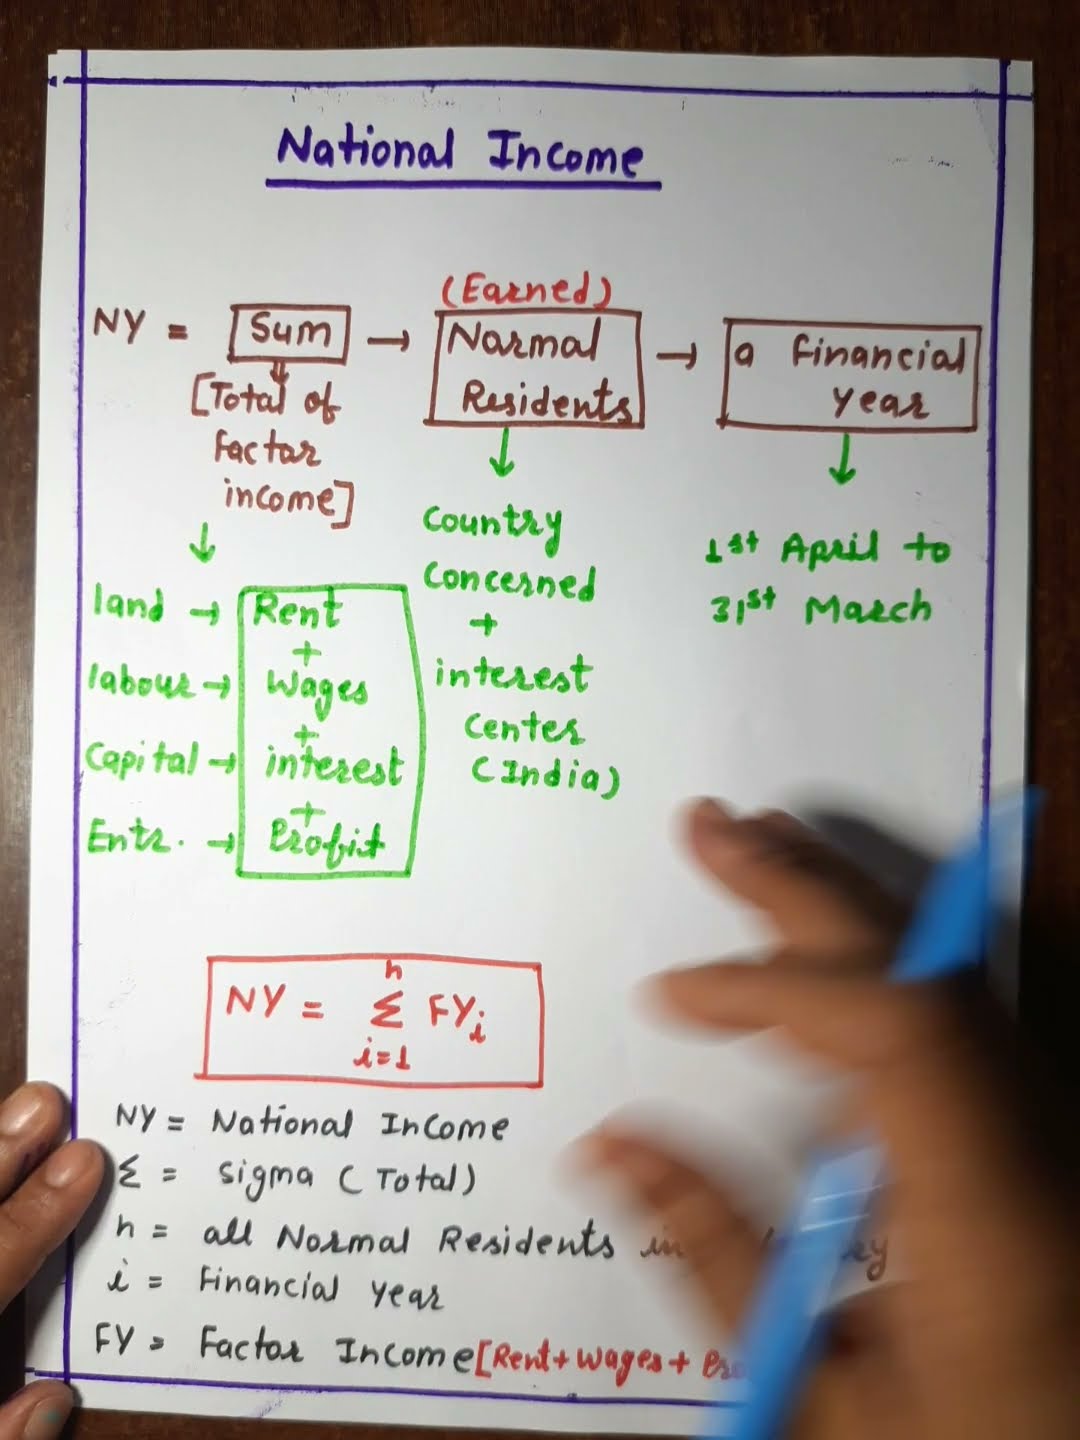 National Income
(Earned)
NY = Sum → Normal Residents → a financial year
[Total of
factor
income]
Country
Concerned
+
interest
Center
(India)
1st April to
31st March
land → Rent
+
labour → Wages
+
Capital → interest
+
Entr. → Profit
n
NY = Σ FYi
i=1
NY = National Income
Σ = Sigma (Total)
n = all Normal Residents in
i = Financial year
FY = Factor Income [Rent + Wages +